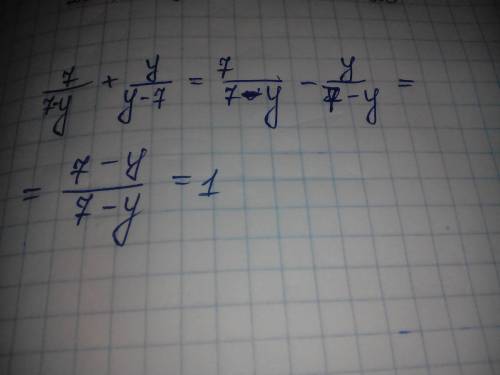 7/(7-y) + y/(y-7) = 7/(7-y) - y/(7-y) =
= (7-y)/(7-y) = 1